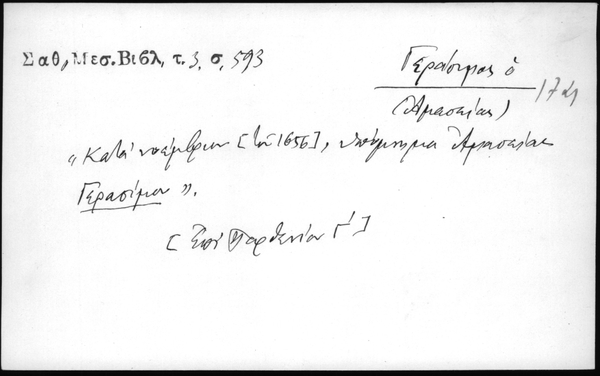 Σαθ, Μεσ. Βιβλ, τ. 3, σ, 593
Γεράσιμος ὁ
(Ἀμασείας)
"Κατὰ νοέμβριον [τοῦ 1656], ὑπόμνημα Ἀμασείας
Γερασίμου".
[Ἐπὶ Παρθενίου Γ']